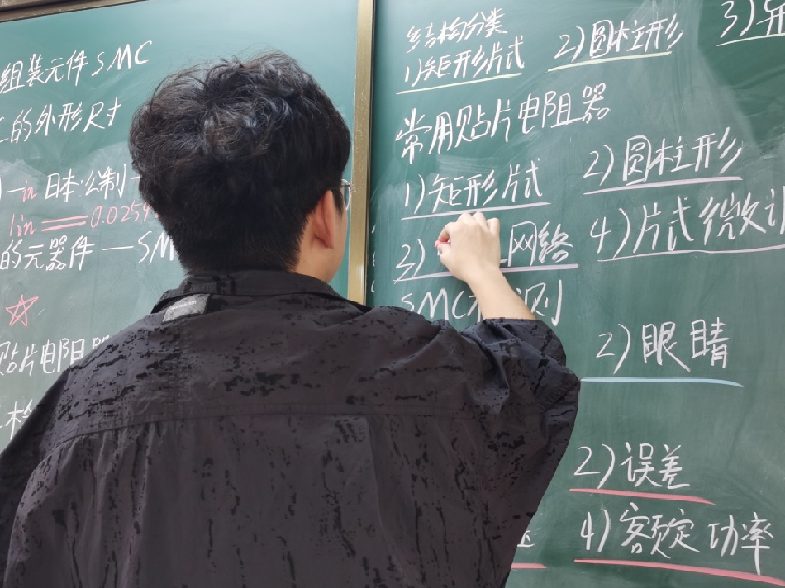 组装元件SMC
的外形尺寸
in 日本公制
1in = 0.0254
的元器件 — SM
贴片电阻器
按结构分类
1)矩形片式 2)圆柱形 3)
常用贴片电阻器
1)矩形片式 2)圆柱形
网络 4)片式微
SMC 测
2)眼睛
2)误差
4)额定功率